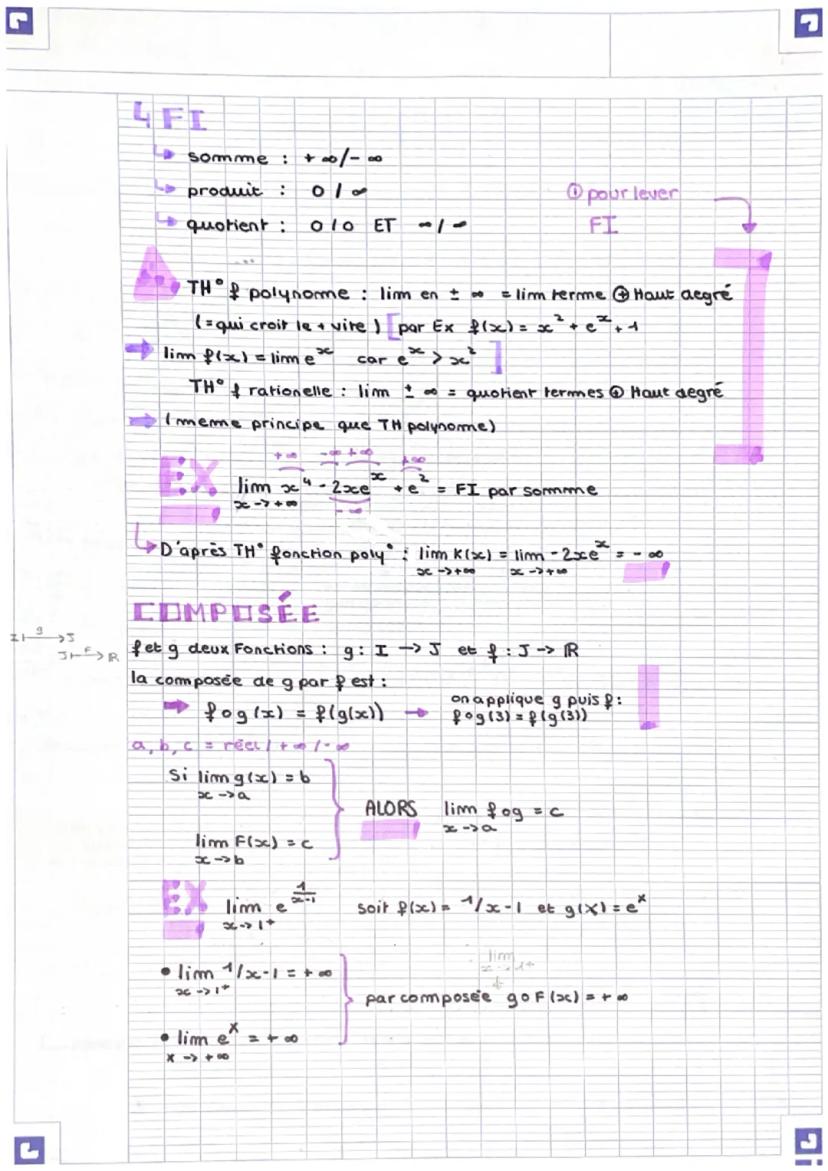 4 FI
↳ somme : + ∞/- ∞
↳ produit : 0 / ∞
↳ quotient : 0/0 ET ∞/∞
① pour lever
FI
TH° f polynome : lim en ± ∞ = lim terme ⊕ Haut degré
(= qui croit le + vite) [par Ex f(x) = x² + eˣ + 1
→ lim f(x) = lim eˣ car eˣ > x² ]
TH° f rationelle : lim ± ∞ = quotient termes ⊕ Haut degré
→ (meme principe que TH polynome)
+∞ -∞ +∞ +∞
EX lim x⁴ - 2xeˣ + e² = FI par somme
x -> +∞ -∞
↳ D'après TH° fonction poly° : lim K(x) = lim - 2xeˣ = - ∞
x -> +∞ x -> +∞
COMPOSÉE
I ⊢g-> J
J ⊢F-> ℝ
f et g deux Fonctions : g : I -> J et f : J -> ℝ
la composée de g par f est :
→ f o g (x) = f(g(x)) → on applique g puis f :
f o g (3) = f (g (3))
a, b, c = réel / +∞ / -∞
Si lim g(x) = b
x -> a
ALORS lim f o g = c
x -> a
lim F(x) = c
x -> b
EX lim e^(1/x-1) soit f(x) = 1/x-1 et g(X) = eˣ
x -> 1⁺
lim
x -> 1+
• lim 1/x-1 = + ∞
x -> 1⁺
par composée g o F (x) = + ∞
• lim eˣ = + ∞
x -> + ∞